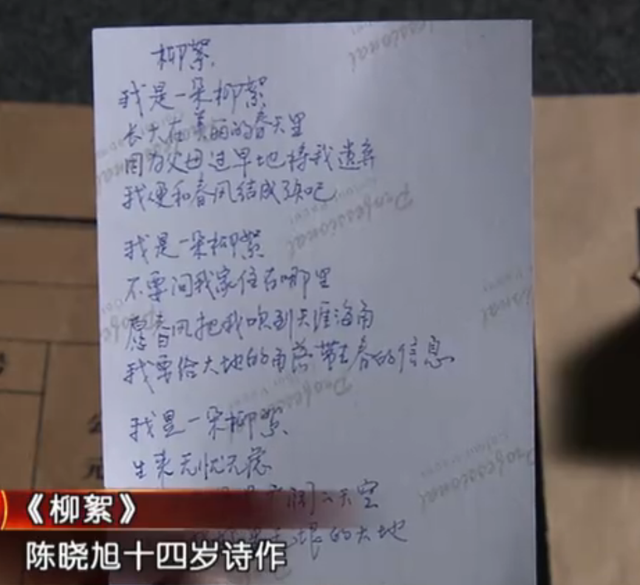 柳絮
我是一朵柳絮
长大在美丽的春天里
因为父母过早地将我遗弃
我便和春风结成了知己
我是一朵柳絮
不要问我家住在哪里
愿春风把我吹到天涯海角
我要给大地的角落带去春的信息
我是一朵柳絮
生来无忧无虑
天空
的大地
《柳絮》
陈晓旭十四岁诗作
Professional